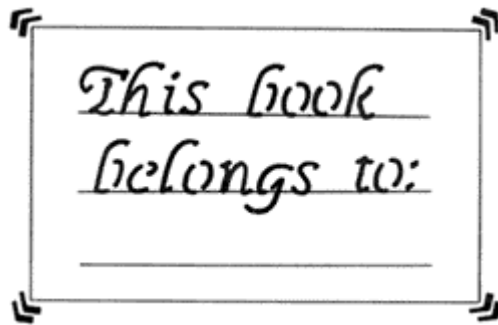 This book
belongs to: